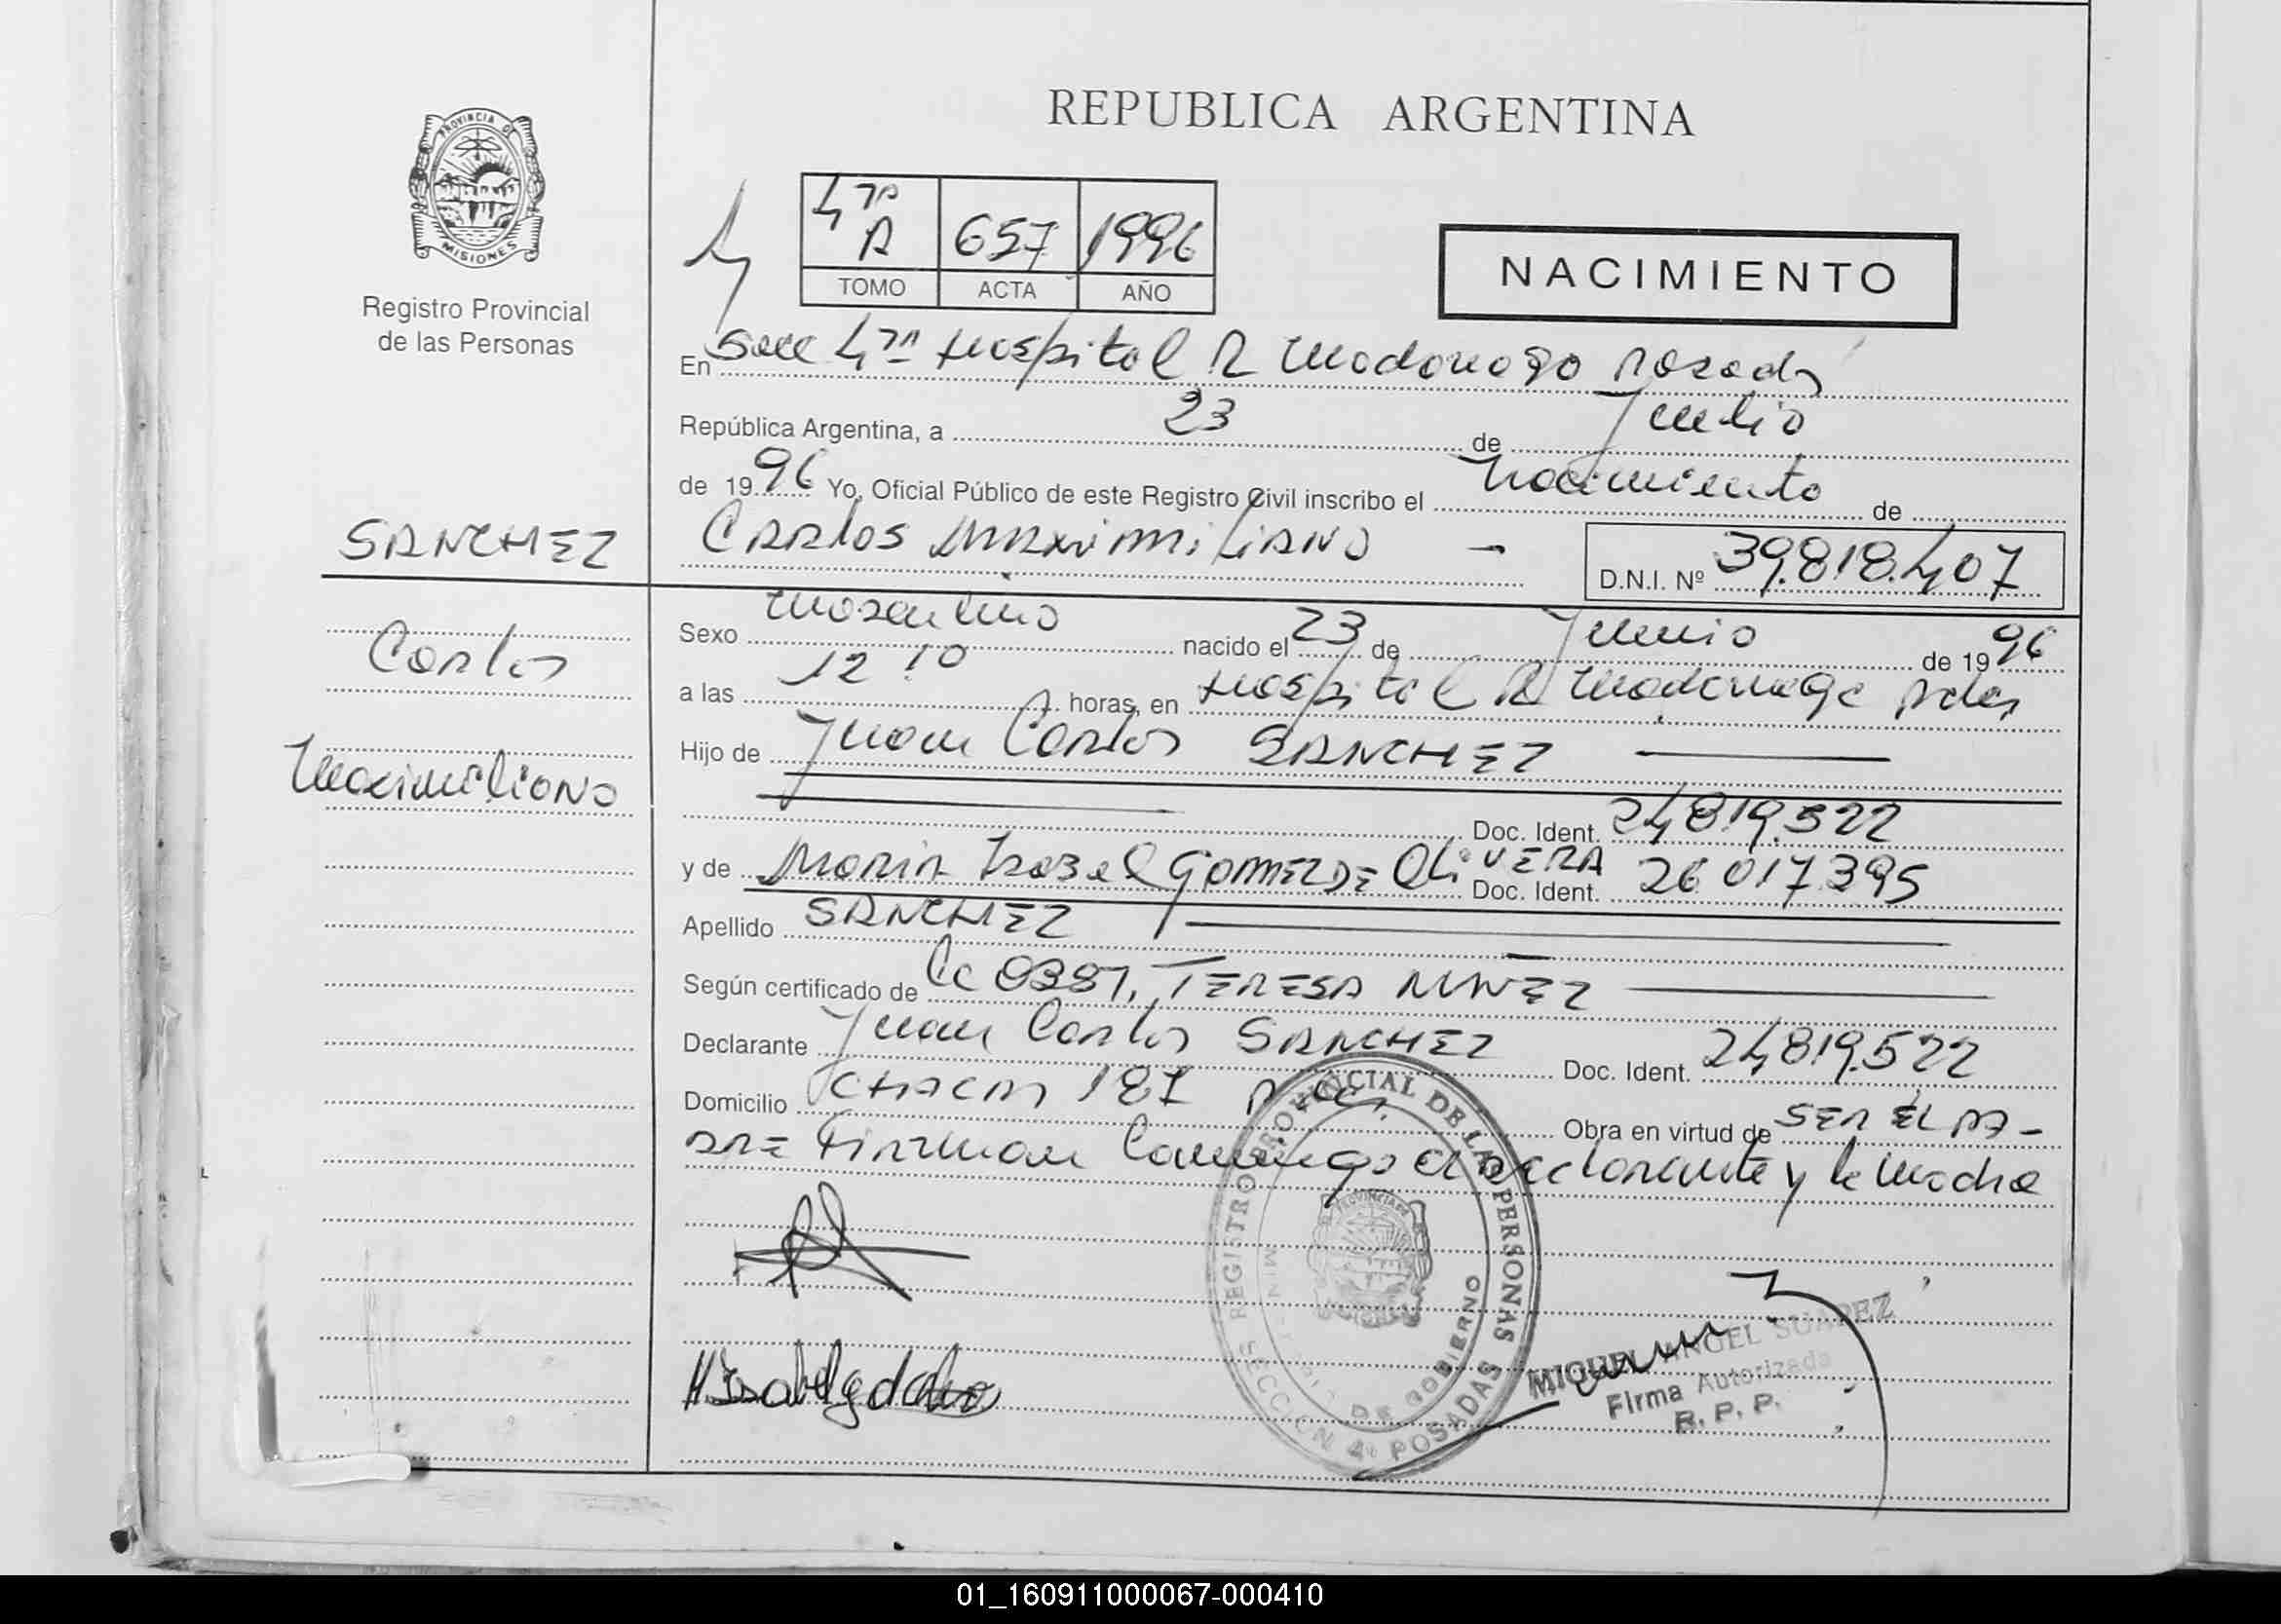 REPUBLICA ARGENTINA
PROVINCIA DE
MISIONES
Registro Provincial
de las Personas
4 4ta A 657 1996
TOMO ACTA AÑO
NACIMIENTO
En Secc 4ta Hospital R Madariaga Posadas
República Argentina, a 23 de Julio
de 1996 Yo, Oficial Público de este Registro Civil inscribo el Nacimiento de
SANCHEZ
Carlos Maximiliano - D.N.I. Nº 39.818.407
Carlos
Maximiliano
Sexo Masculino nacido el 23 de Junio de 1996
a las 12 10 horas, en Hospital R Madariaga Pdas
Hijo de Juan Carlos SANCHEZ
Doc. Ident. 24.819.522
y de Maria Isabel GOMEZ DE OLIVERA Doc. Ident. 26 017.395
Apellido SANCHEZ
Según certificado de TERESA NUÑEZ
Declarante Juan Carlos SANCHEZ Doc. Ident. 24.819.522
Domicilio CHACRA 181 Pdas Obra en virtud de SER EL PA-
DRE Firman Conmigo el Declarante y la Madre
REGISTRO PROVINCIAL DE LAS PERSONAS
SECCION 4ª POSADAS
DE GOBIERNO
MIGUEL ANGEL SUAREZ
Firma Autorizada
R. P. P.
01_160911000067-000410